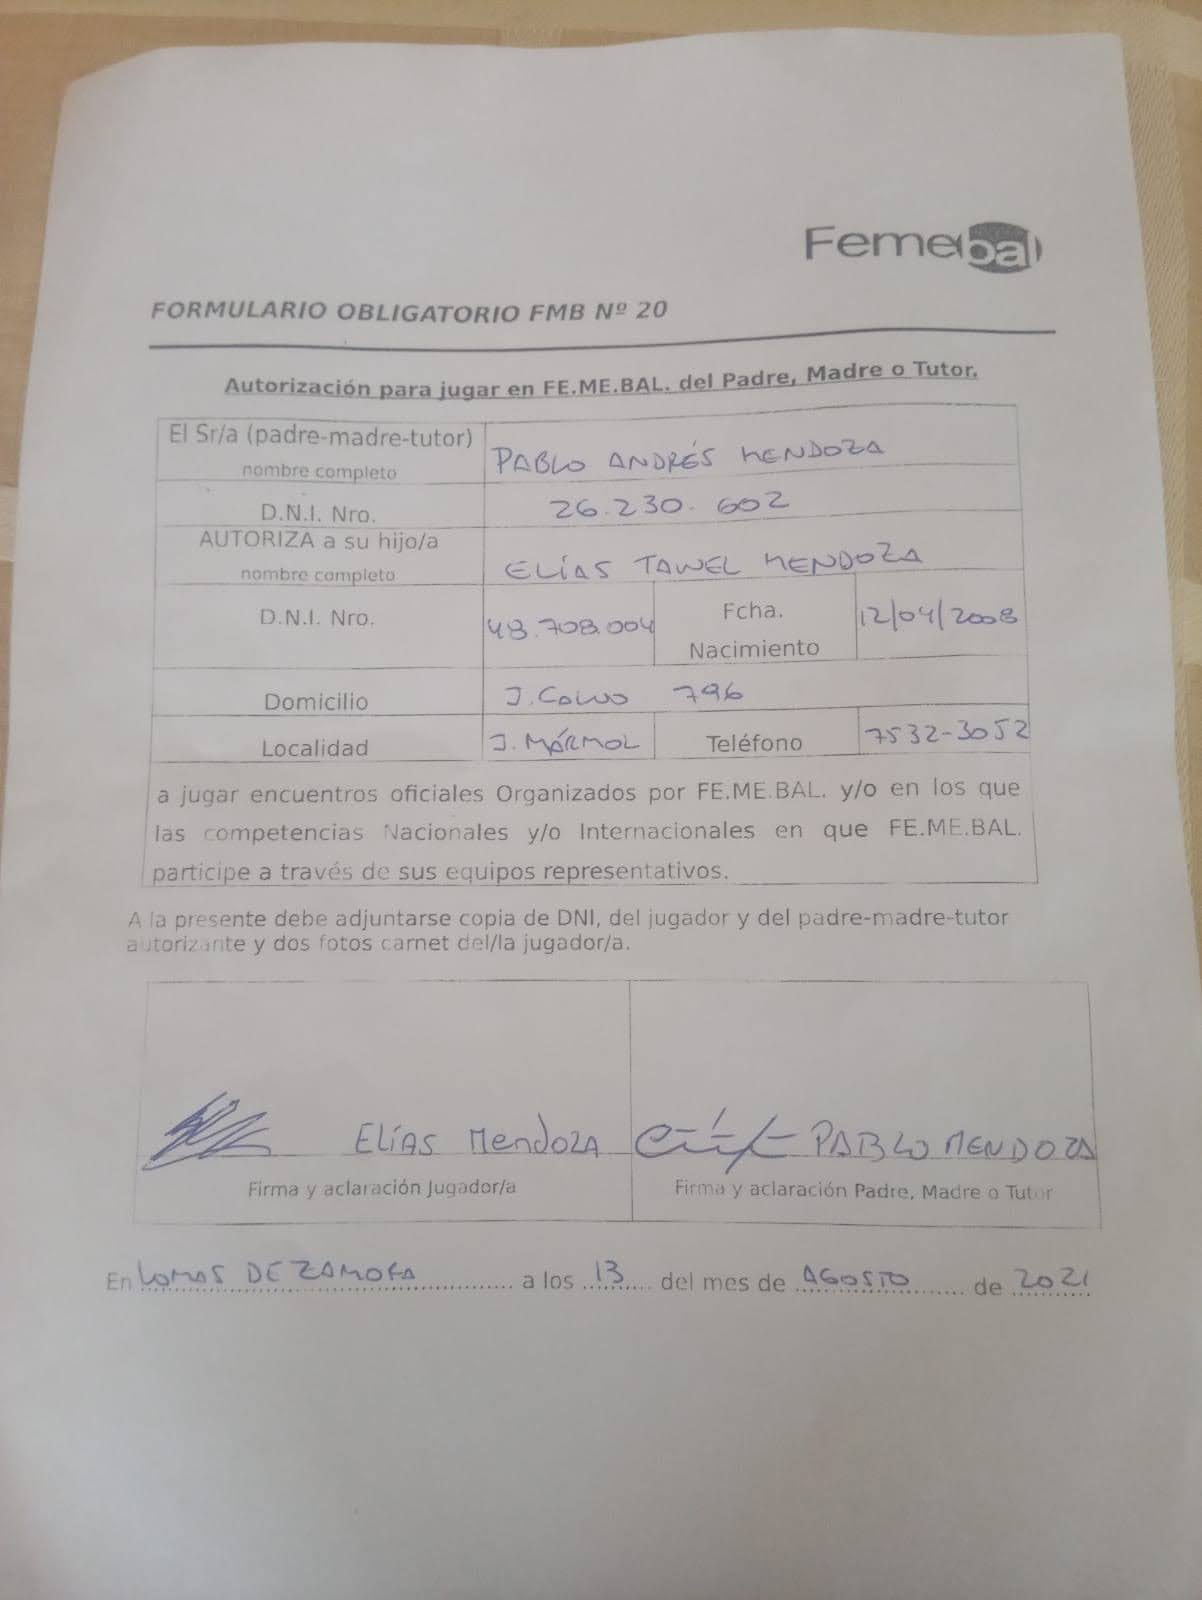 Femebal
FORMULARIO OBLIGATORIO FMB Nº 20
Autorización para jugar en FE.ME.BAL. del Padre, Madre o Tutor.
El Sr/a (padre-madre-tutor)
nombre completo
PABLO ANDRÉS MENDOZA
D.N.I. Nro.
26.230.602
AUTORIZA a su hijo/a
nombre completo
ELÍAS TAWEL MENDOZA
D.N.I. Nro.
48.708.004
Fcha.
Nacimiento
12/04/2008
Domicilio
J. CALVO 796
Localidad
J. MÁRMOL
Teléfono
7532-3052
a jugar encuentros oficiales Organizados por FE.ME.BAL. y/o en los que
las competencias Nacionales y/o Internacionales en que FE.ME.BAL.
participe a través de sus equipos representativos.
A la presente debe adjuntarse copia de DNI, del jugador y del padre-madre-tutor
autorizante y dos fotos carnet del/la jugador/a.
ELÍAS MENDOZA
Firma y aclaración Jugador/a
PABLO MENDOZA
Firma y aclaración Padre, Madre o Tutor
En LOMAS DE ZAMORA a los 13 del mes de AGOSTO de 2021